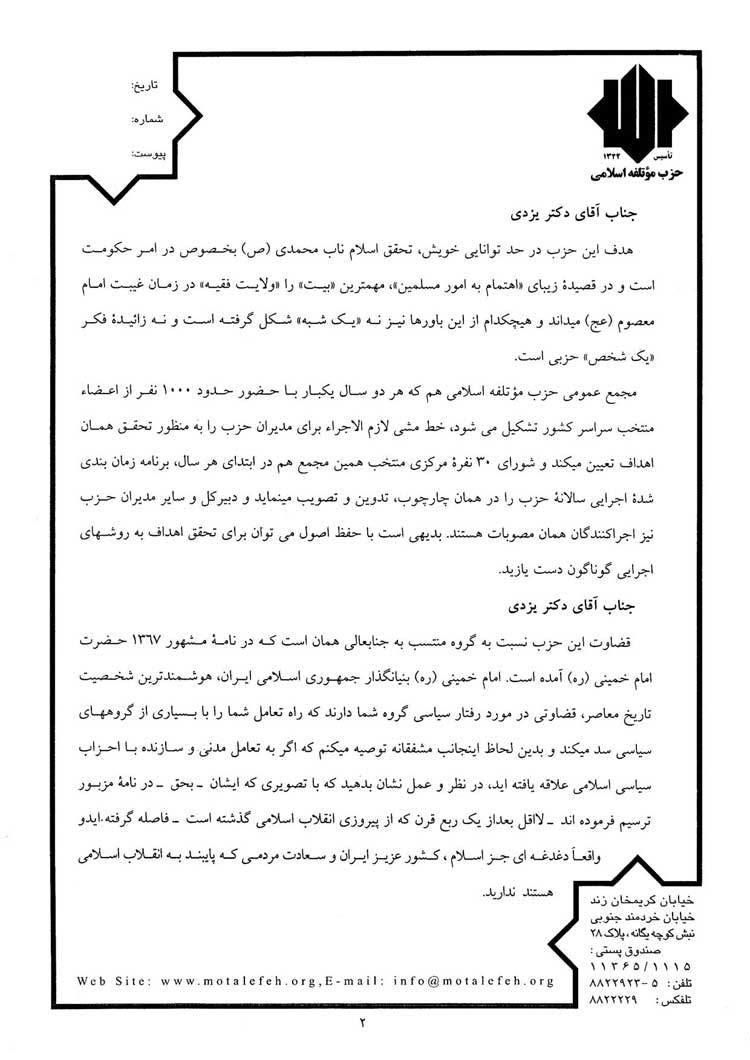 تاریخ:
شماره:
پیوست:
تأسیس ۱۳۴۲
حزب مؤتلفه اسلامی
جناب آقای دکتر یزدی
هدف این حزب در حد توانایی خویش، تحقق اسلام ناب محمدی (ص) بخصوص در امر حکومت
است و در قصیدهٔ زیبای «اهتمام به امور مسلمین»، مهمترین «بیت» را «ولایت فقیه» در زمان غیبت امام
معصوم (عج) میداند و هیچکدام از این باورها نیز نه «یک شبه» شکل گرفته است و نه زائیدهٔ فکر
«یک شخص» حزبی است.
مجمع عمومی حزب مؤتلفه اسلامی هم که هر دو سال یکبار با حضور حدود ۱۰۰۰ نفر از اعضاء
منتخب سراسر کشور تشکیل می شود، خط مشی لازم الاجراء برای مدیران حزب را به منظور تحقق همان
اهداف تعیین میکند و شورای ۳۰ نفرهٔ مرکزی منتخب همین مجمع هم در ابتدای هر سال، برنامه زمان بندی
شدهٔ اجرایی سالانهٔ حزب را در همان چارچوب، تدوین و تصویب مینماید و دبیرکل و سایر مدیران حزب
نیز اجراکنندگان همان مصوبات هستند. بدیهی است با حفظ اصول می توان برای تحقق اهداف به روشهای
اجرایی گوناگون دست یازید.
جناب آقای دکتر یزدی
قضاوت این حزب نسبت به گروه منتسب به جنابعالی همان است که در نامهٔ مشهور ۱۳۶۷ حضرت
امام خمینی (ره) آمده است. امام خمینی (ره) بنیانگذار جمهوری اسلامی ایران، هوشمندترین شخصیت
تاریخ معاصر، قضاوتی در مورد رفتار سیاسی گروه شما دارند که راه تعامل شما را با بسیاری از گروههای
سیاسی سد میکند و بدین لحاظ اینجانب مشفقانه توصیه میکنم که اگر به تعامل مدنی و سازنده با احزاب
سیاسی اسلامی علاقه یافته اید، در نظر و عمل نشان بدهید که با تصویری که ایشان ـ بحق ـ در نامهٔ مزبور
ترسیم فرموده اند ـ لااقل بعداز یک ربع قرن که از پیروزی انقلاب اسلامی گذشته است ـ فاصله گرفته.ایدو
واقعاً دغدغه ای جز اسلام ، کشور عزیز ایران و سعادت مردمی که پایبند به انقلاب اسلامی
هستند ندارید.
خیابان کریمخان زند
خیابان خردمند جنوبی
نبش کوچه یگانه ، پلاک ۲۸
صندوق پستی :
۱۱۳۶۵/۱۱۱۵
تلفن : ۵ -۸۸۲۲۹۲۳
تلفکس : ۸۸۲۲۲۲۹
Web Site: www.motalefeh.org,E-mail: info@motalefeh.org
۲